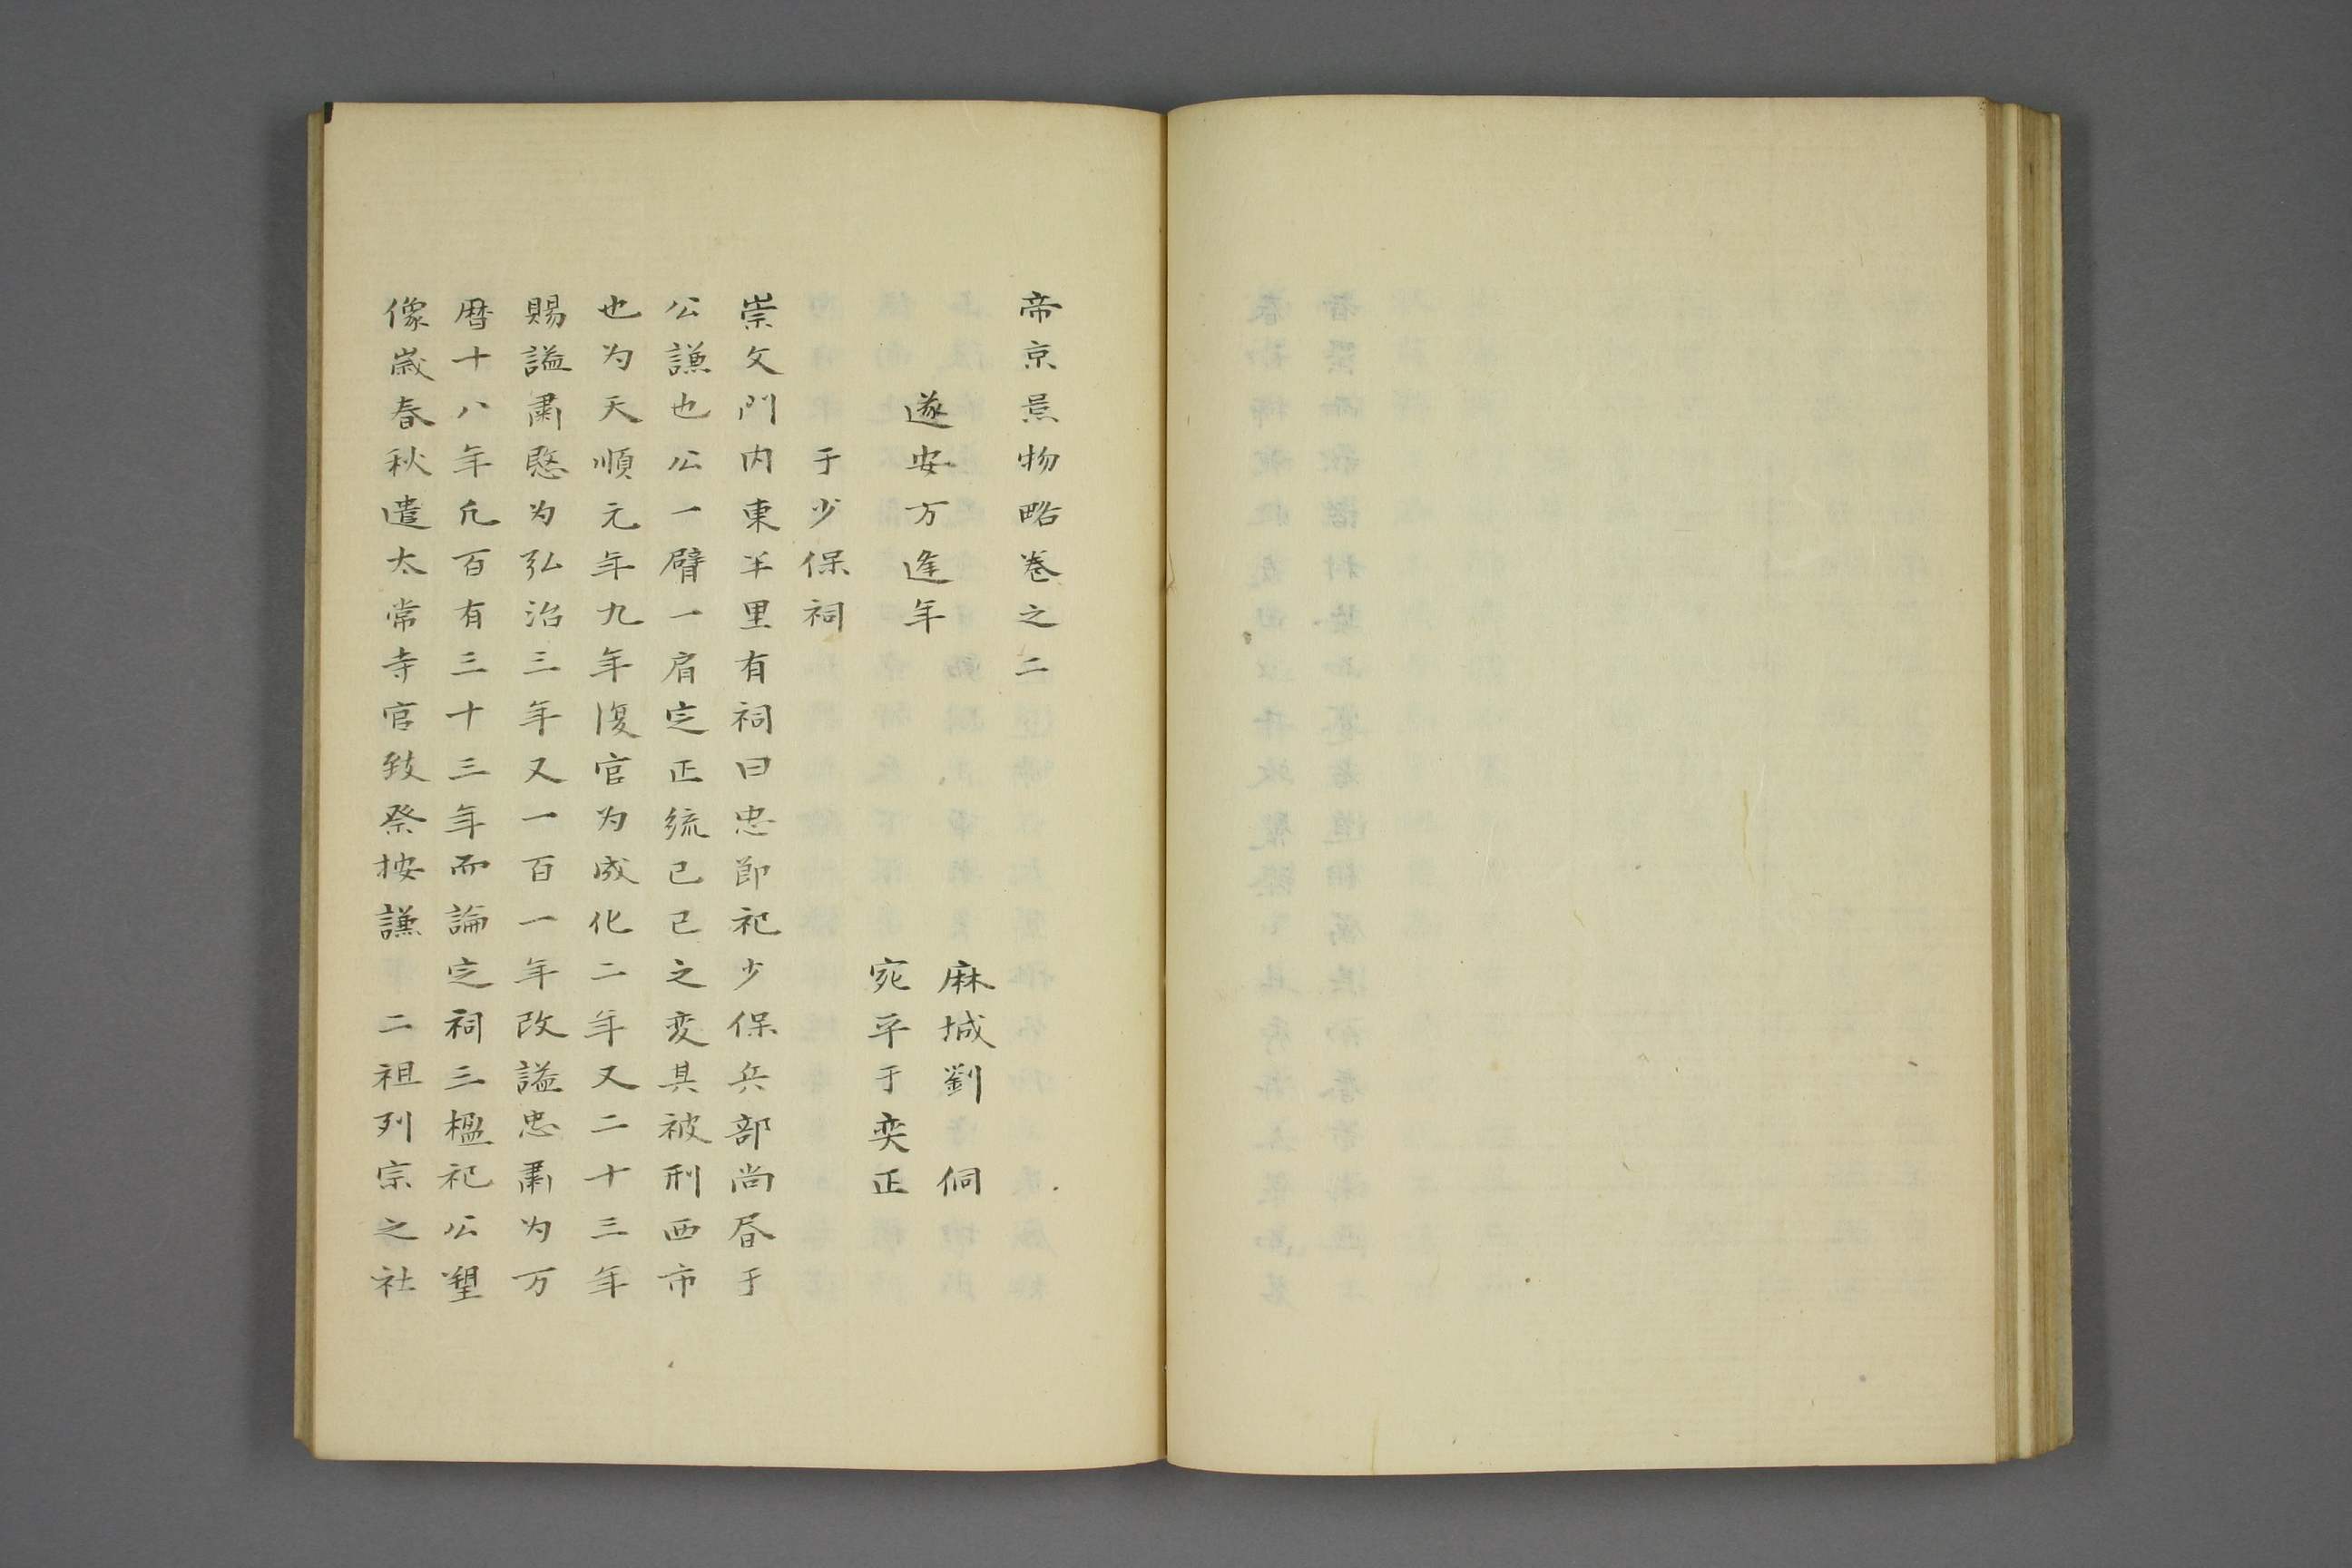 帝京景物略卷之二
麻城劉　侗
遂安万逢年
宛平于奕正
于少保祠
崇文門内東半里有祠曰忠節祀少保兵部尚书于
公謙也公一臂一肩定正統己巳之変具被刑西市
也为天順元年九年復官为成化二年又二十三年
賜謚肅愍为弘治三年又一百一年改謚忠肅为万
暦十八年凢百有三十三年而論定祠三楹祀公塑
像嵗春秋遣太常寺官致祭按謙　二祖列宗之社